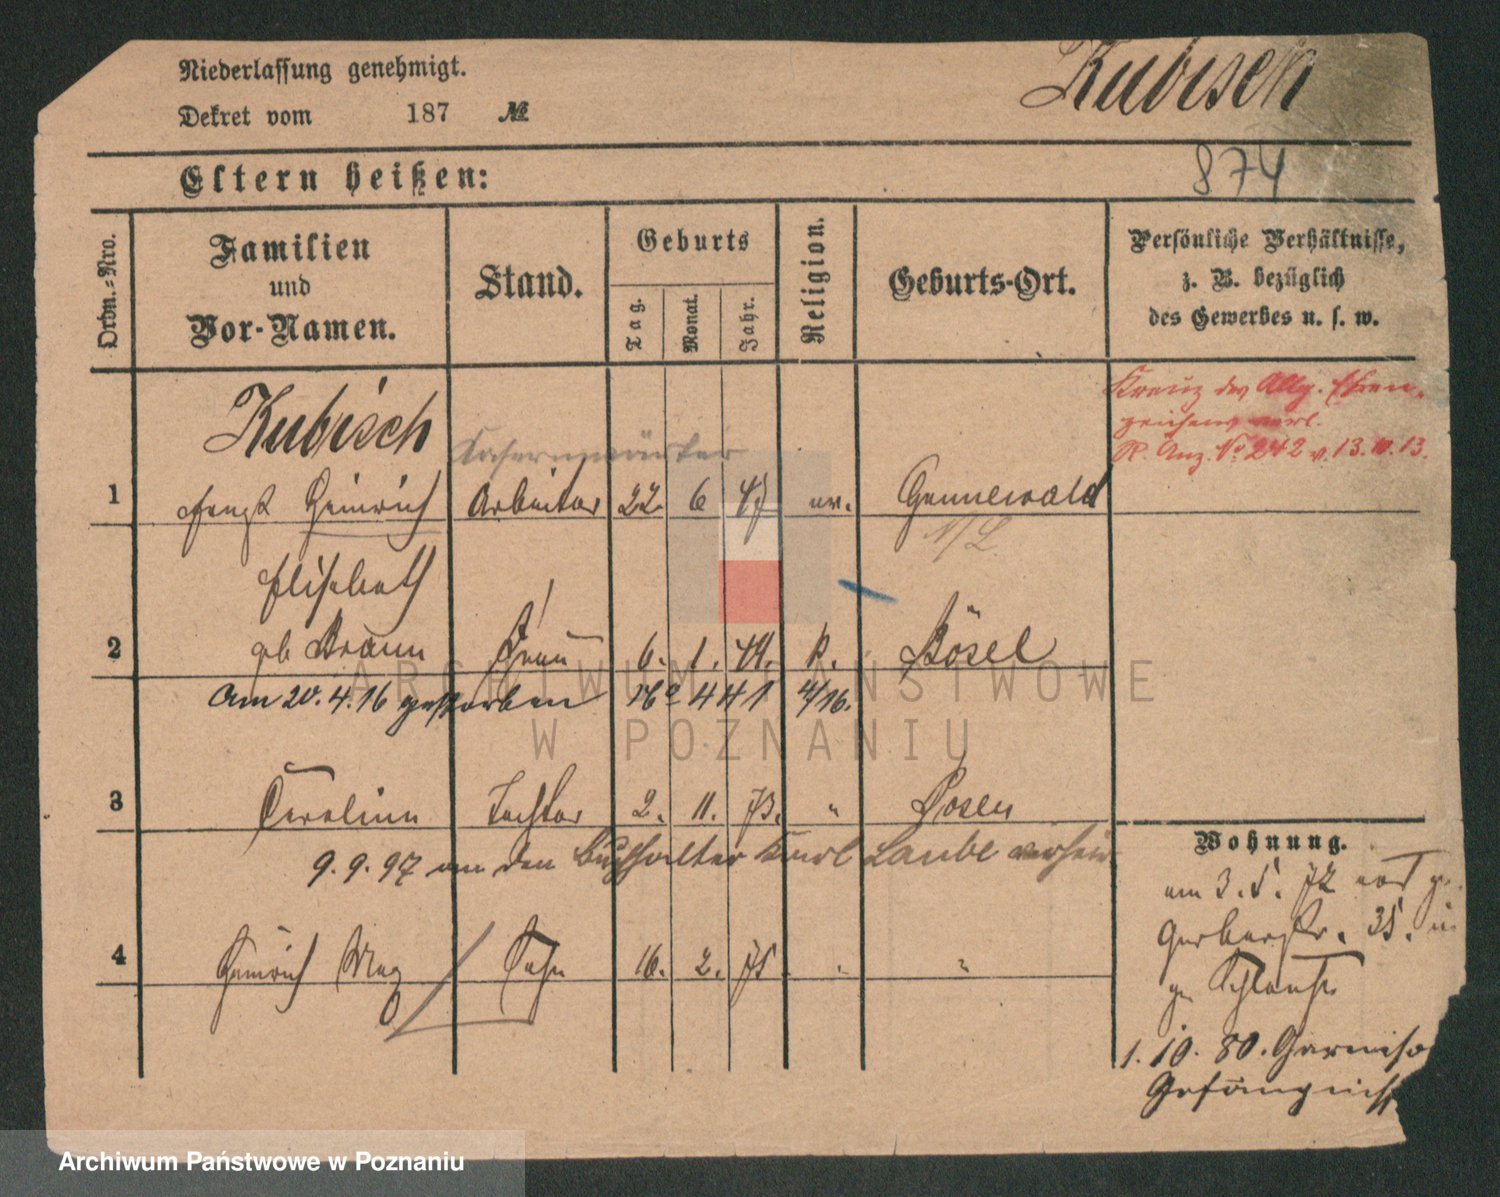 Niederlassung genehmigt.
Dekret vom 187 №
Kubisch
874
Eltern heißen:
Ordn.-Nro.
Familien
und
Vor-Namen.
Stand.
Geburts
Tag.
Monat.
Jahr.
Religion.
Geburts-Ort.
Persönliche Verhältnisse,
z. B. bezüglich
des Gewerbes u. s. w.
Kreuz des Allg. Ehren-
zeichens verl.
R. Anz. No 242 v. 13.10.13.
Kubisch
Kasernenwärter
1 Heinrich Arbeiter 22. 6 47 ev. Gennewald
N/L
Elisabeth
2 gb Braun Frau 6. 1. 49. k. Bösel
Am 20.4.16 gestorben 441 4/16.
3 Caroline Tochter 2. 11. 73. " Posen
9.9.97 an den Buchhalter Karl Laube verheir
4 Heinrich Max Sohn 16. 2. 75 " "
Wohnung.
am 3.5.72
Gerberstr. 35.
1.10.80. Garniso
Gefängniss
ARCHIWUM PAŃSTWOWE
W POZNANIU
Archiwum Państwowe w Poznaniu